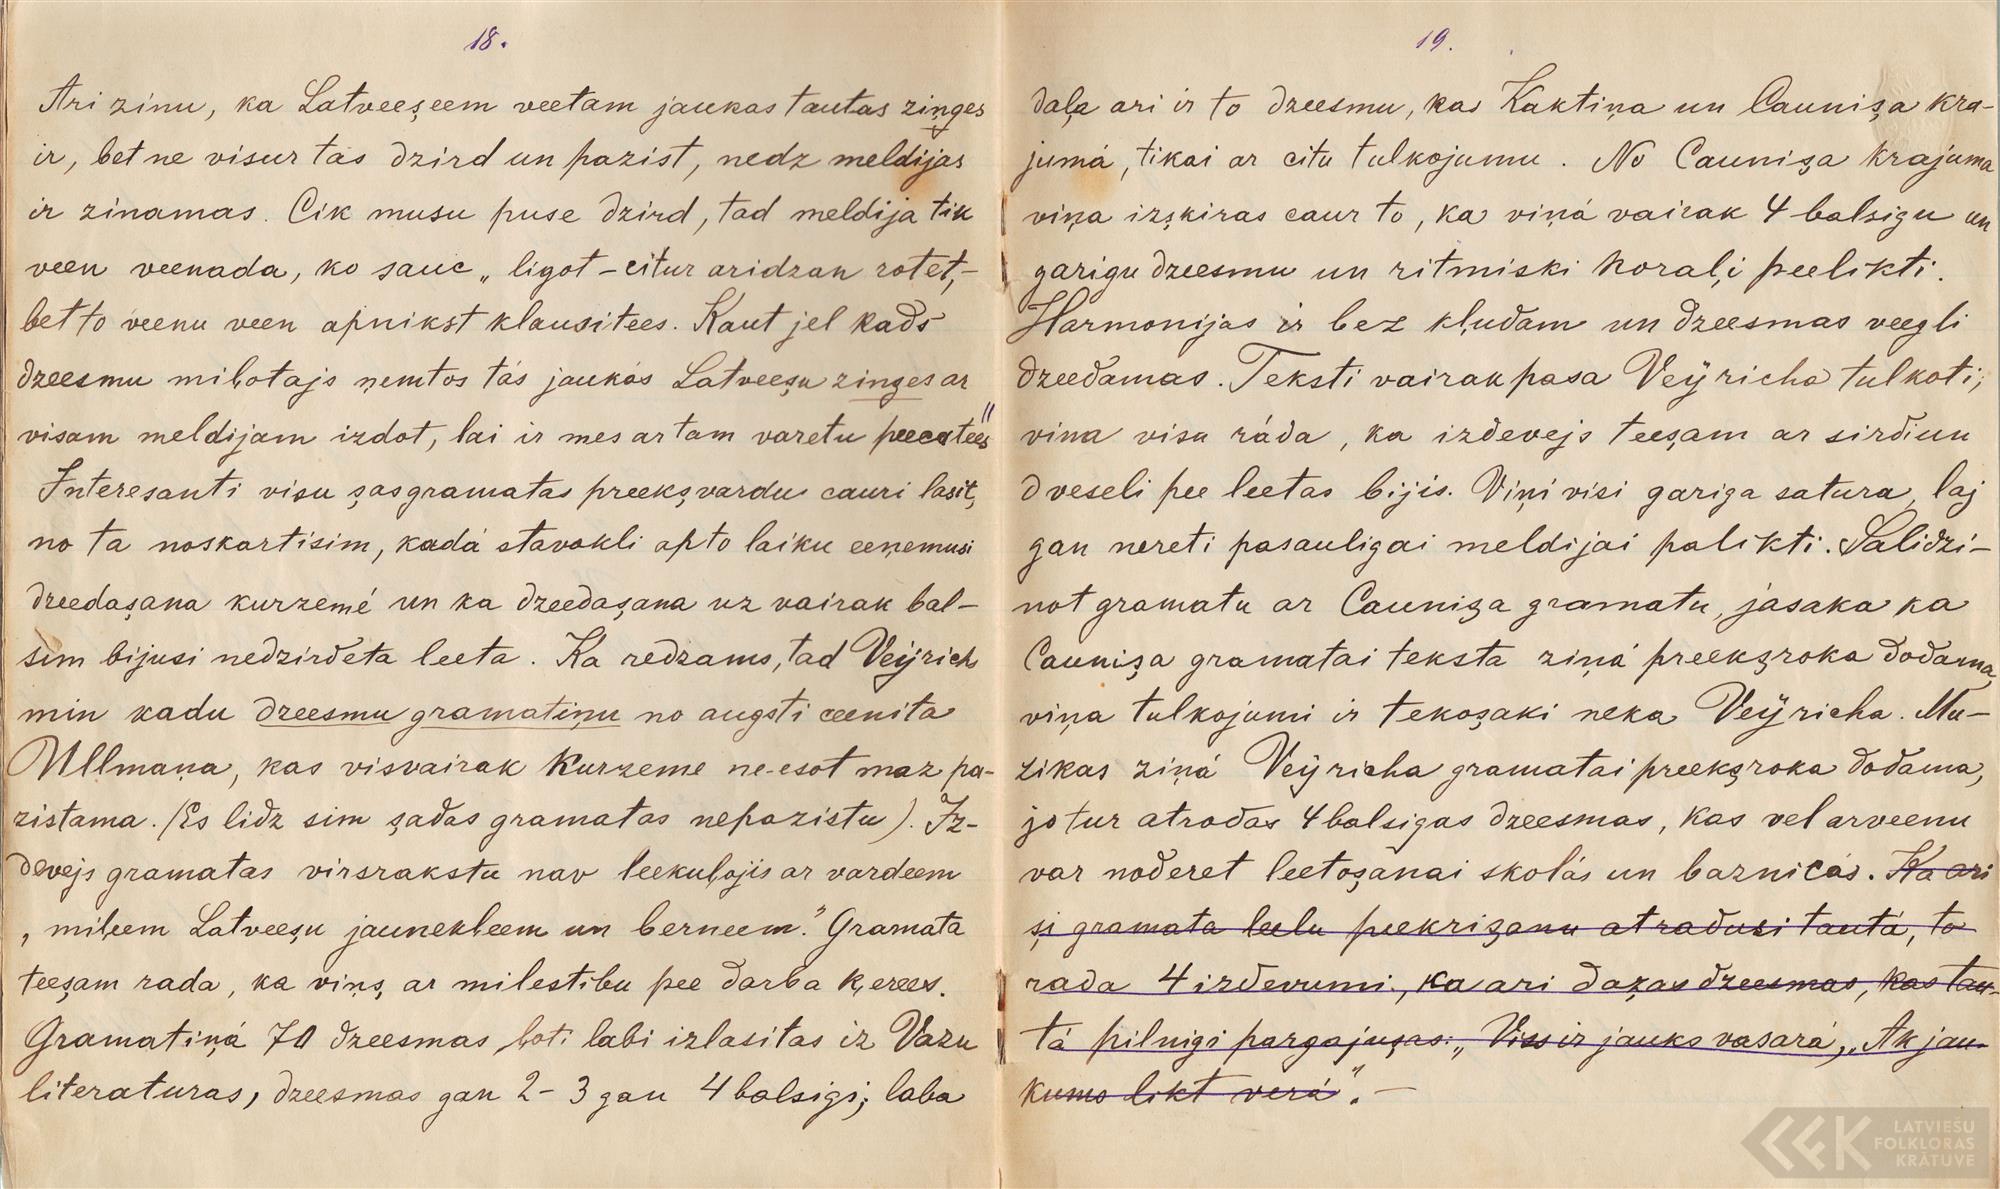 18.
Ari zinu, ka Latveeşeem veetam jaukas tautas ziņges
ir, bet ne visur tas dzird un pazist, nedz meldijas
ir zinamas. Cik musu puse dzird, tad meldija tik
veen veenada, ko sauc „ligot – citur aridzan rotet, –
bet to veenu veen apnikst klausitees. Kaut jel kads
dzeesmu miļotajs ņemtos tás jaukás Latveeşu zinges ar
visam meldijam izdot, lai ir mes ar tam varetu peecatees"
Interesanti visu şas gramatas preekşvardu cauri lasit,
no ta noskartisim, kadá stavokli ap to laiku eeņemusi
dzeedaşana kurzemé un ka dzeedaşana uz vairak bal-
sim bijusi nedzirdeta leeta. Ka redzams, tad Veÿrich
min kadu dzeesmu gramatiņu no augsti ceenita
Ullmaņa, kas visvairak Kurzeme ne-esot maz pa-
zistama. (Es lidz sim şadas gramatas nepazistu). Iz-
devejs gramatas virsrakstu nav leekuļojis ar vardeem
„miļeem Latveeşu jaunekļeem un berneem." Gramata
teeşam rada, ka viņş ar milestibu pee darba ķerees.
Gramatiņá 70 dzeesmas ļoti labi izlasitas iz Vazu
literaturas, dzeesmas gan 2 – 3 gan 4 balsigi; laba
19.
daļa ari ir to dzeesmu, kas Kaktiņa un Caunişa kra-
jumá, tikai ar citu tulkojumu. No Caunişa krajuma
viņa izşkiras caur to, ka viņá vairak 4 balsigu un
garigu dzeesmu un ritmiski koraļi peelikti.
Harmonijas ir bez kļudam un dzeesmas veegli
dzeedamas. Teksti vairak paşa Veÿricha tulkoti;
viņa visu ráda, ka izdevejs teeşam ar sirdi un
dveseli pee leetas bijis. Viņi visi gariga satura, laj
gan nereti pasauligai meldijai palikti. Salidzi-
not gramatu ar Caunişa gramatu, jasaka ka
Caunişa gramatai teksta ziņá preekşroka dodama,
viņa tulkojumi ir tekoşaki neka Veÿricha. Mu-
zikas ziņá Veÿricha gramatai preekşroka dodama,
jo tur atrodas 4 balsigas dzeesmas, kas vel arveenu
var noderet leetoşanai skolás un baznicás. Ka ari
şi gramata leelu peekrişanu atradusi tautá, to
rada 4 izdevumi, ka ari daẓas dzeesmas, kas tau-
tá pilnigi pargajuşas: „Viss ir jauks vasará, „Ak jau-
kums likt verá". –
LATVIEŠU
FOLKLORAS
KRĀTUVE